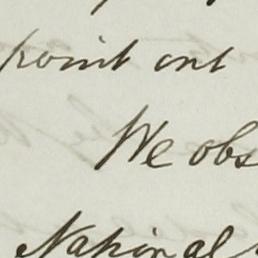 point out
We obs
National